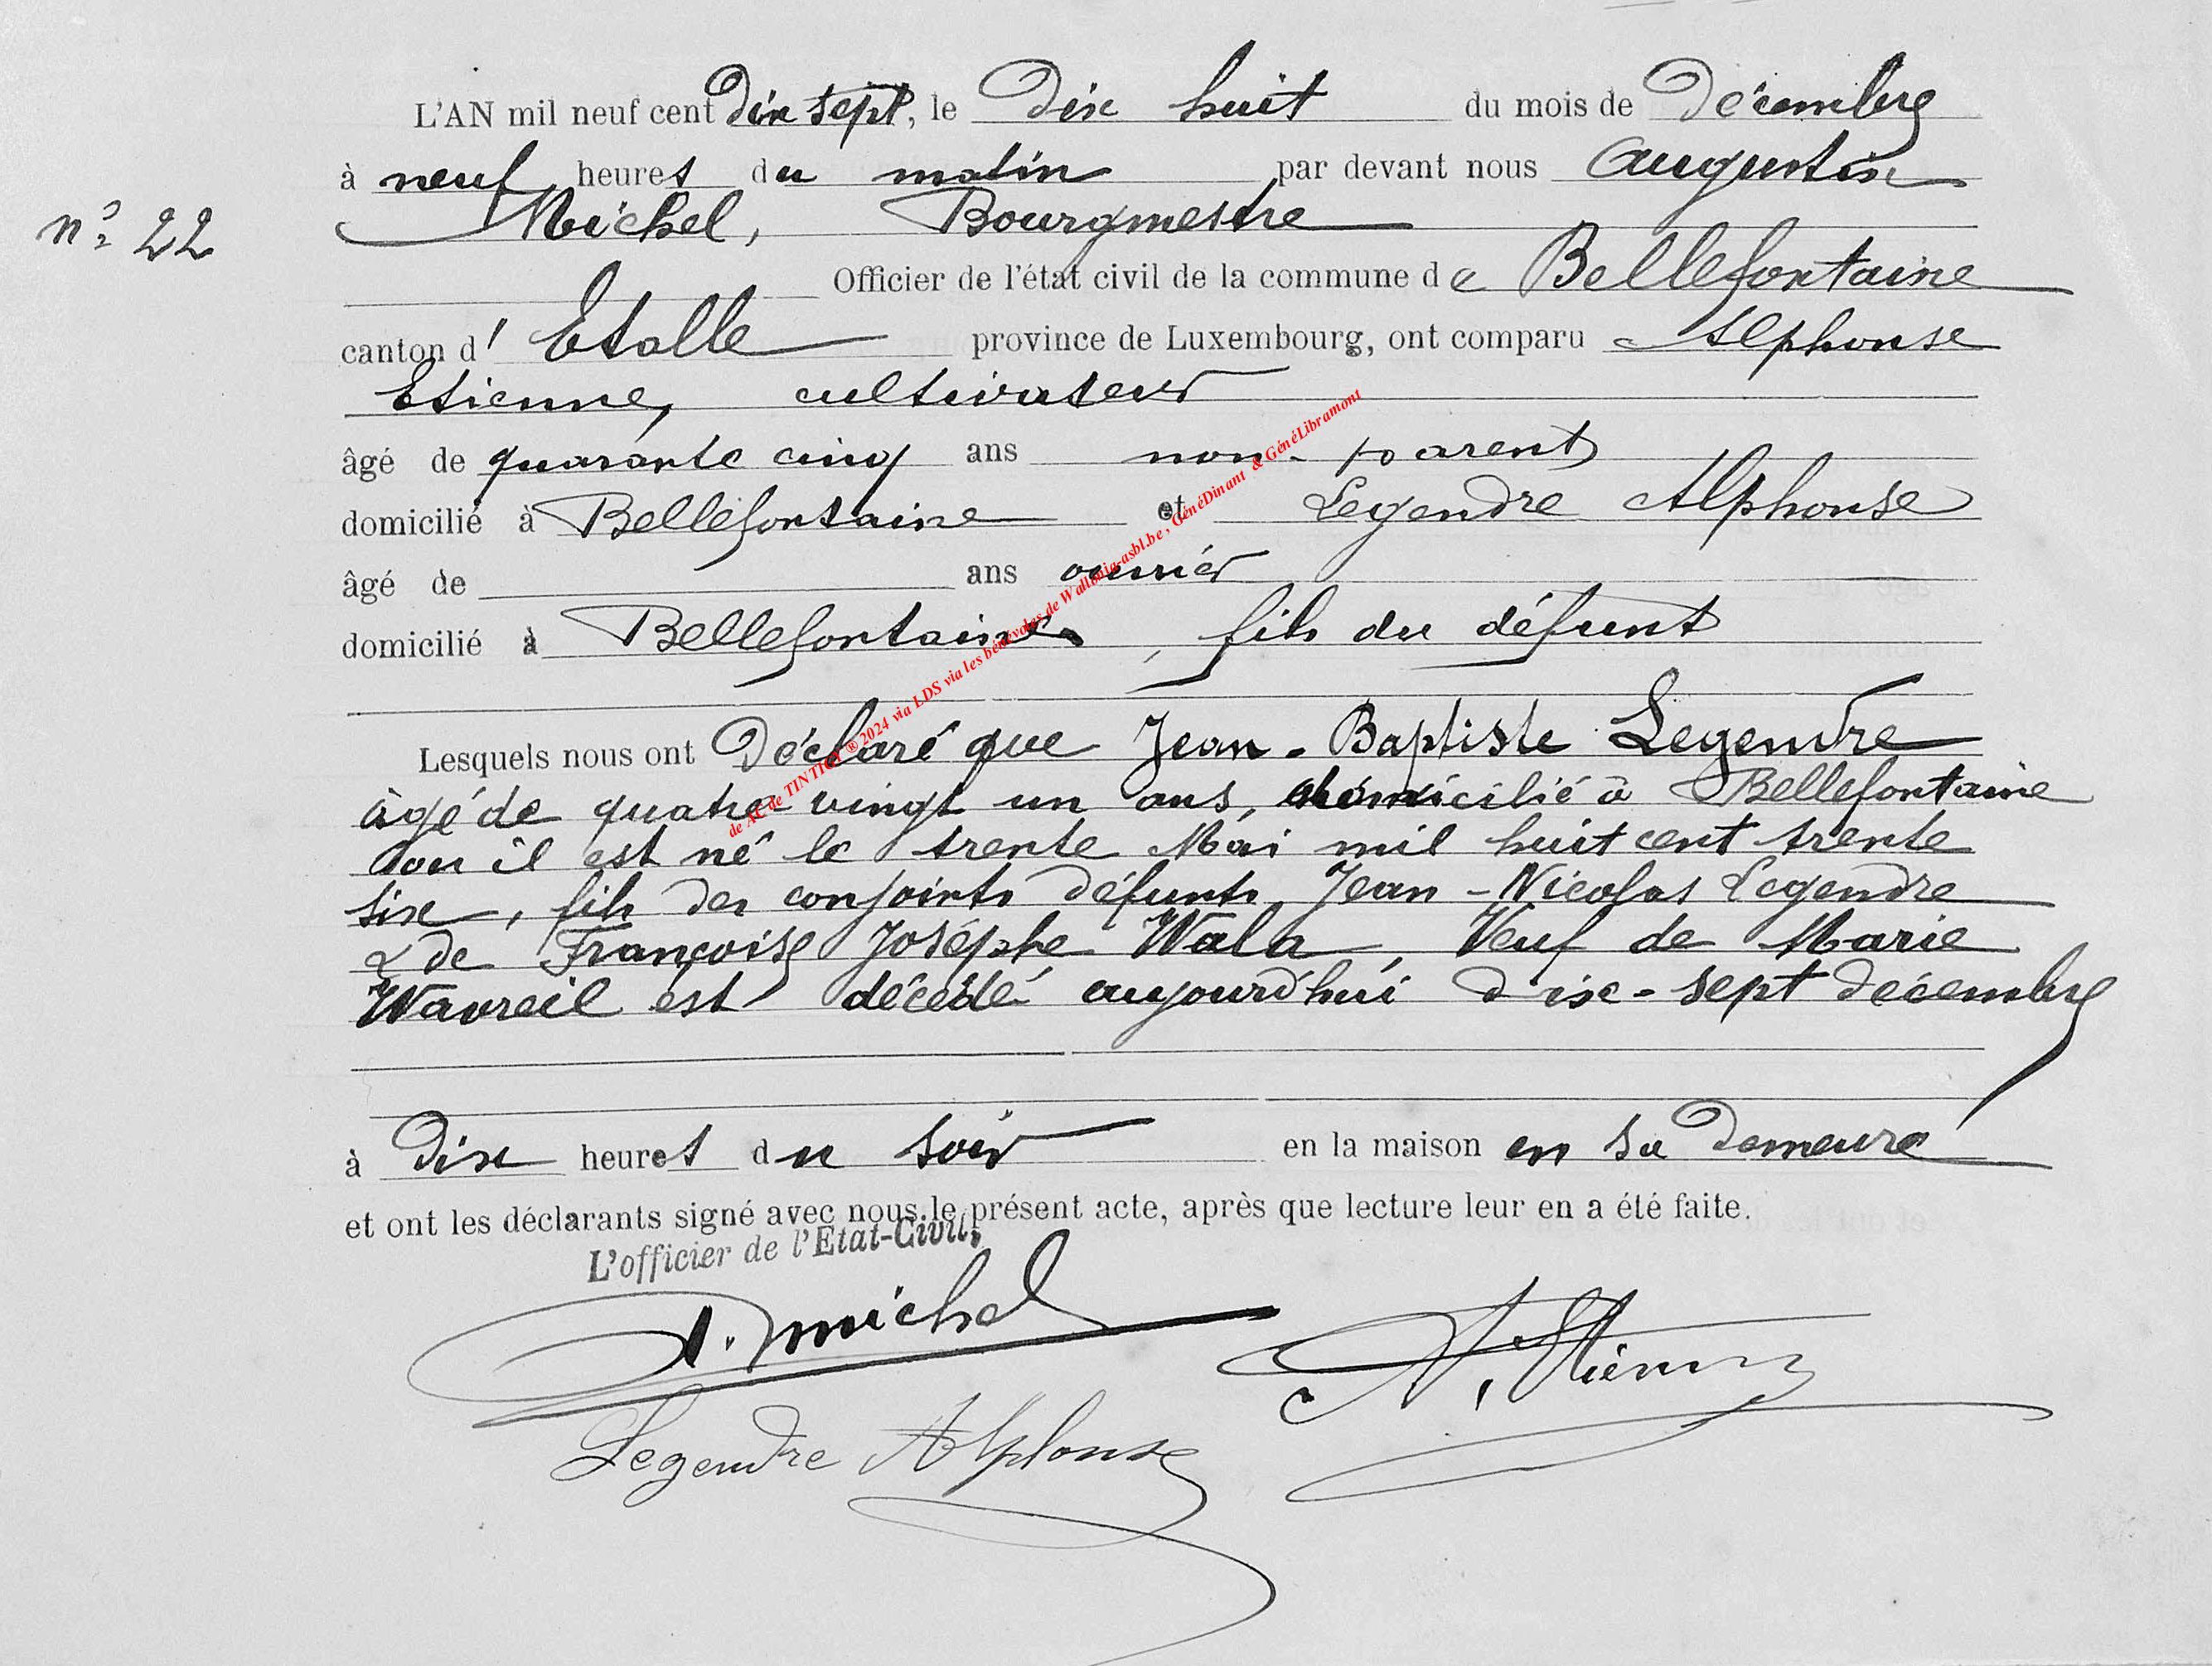 L'AN mil neuf cent Dix sept, le Dix huit du mois de Décembre
à neuf heures du matin par devant nous Augustin
n° 22
Michel, Bourgmestre
Officier de l'état civil de la commune de Bellefontaine
canton d' Etalle province de Luxembourg, ont comparu Alphonse
Etienne, cultivateur
âgé de quarante cinq ans non-parent
domicilié à Bellefontaine et Legendre Alphonse
âgé de ans ouvrier
domicilié à Bellefontaine, fils du défunt
Lesquels nous ont Déclaré que Jean-Baptiste Legendre
âgé de quatre vingt un ans, domicilié à Bellefontaine
ou il est né le trente Mai mil huit cent trente
six, fils des conjoints défunts Jean-Nicolas Legendre
& de Françoise Joséphe Wala, Veuf de Marie
Wavreil est décédé aujourd'hui dix-sept décembre
à Dix heures du soir en la maison en sa demeure
et ont les déclarants signé avec nous le présent acte, après que lecture leur en a été faite.
L'officier de l'Etat-Civil,
A. Michel
A. Etienne
Legendre Alphonse
de AC de TINTIGNY ® 2024 via LDS via les bénévoles de Wallonia-asbl.be, GénéDinant & GénéLibramont